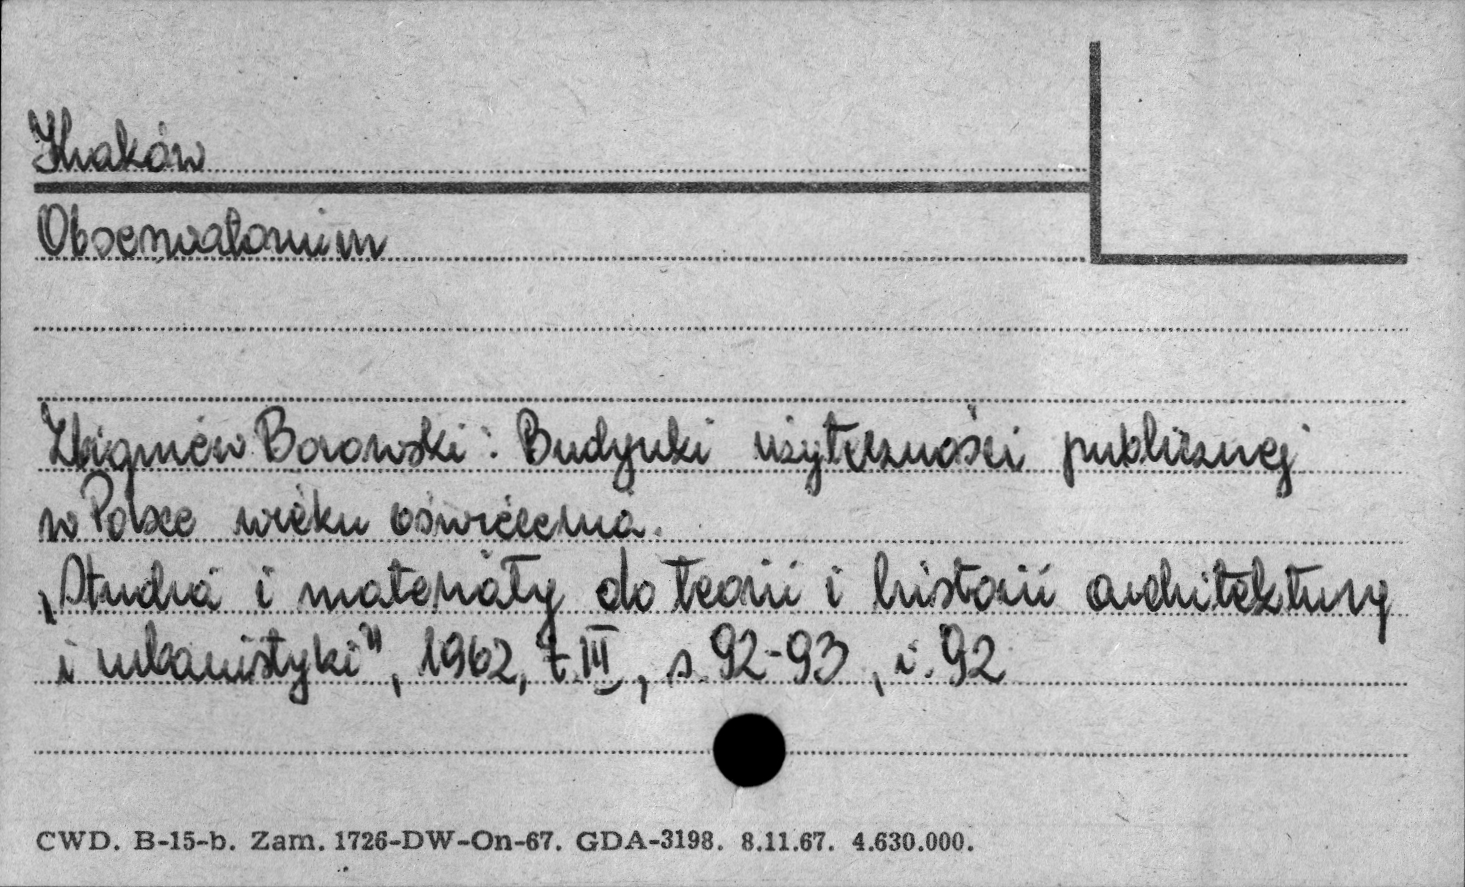 Kraków
Obserwatorium
Zbigniew Borowski: Budynki użyteczności publicznej
w Polsce wieku oświecenia.
„Studia i materiały do teorii i historii architektury
i urbanistyki", 1962, t. III, s. 92-93, i. 92
CWD. B-15-b. Zam. 1726-DW-On-67. GDA-3198. 8.11.67. 4.630.000.